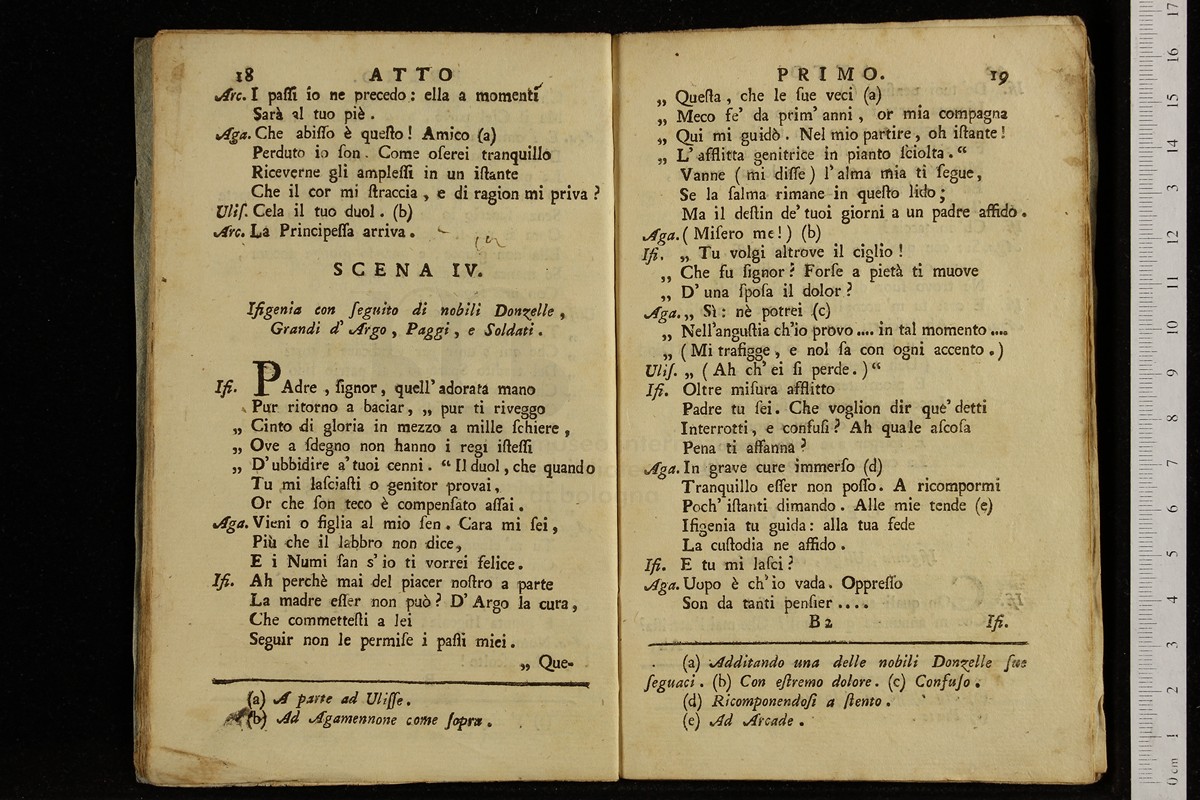 18 ATTO
Arc. I paſſi io ne precedo: ella a momenti
Sarà al tuo piè.
Aga. Che abiſſo è queſto! Amico (a)
Perduto io ſon. Come oſerei tranquillo
Riceverne gli ampleſſi in un iſtante
Che il cor mi ſtraccia, e di ragion mi priva?
Uliſ. Cela il tuo duol. (b)
Arc. La Principeſſa arriva.
SCENA IV.
Ifigenia con ſeguito di nobili Donzelle,
Grandi d' Argo, Paggi, e Soldati.
Ifi. PAdre, ſignor, quell' adorata mano
Pur ritorno a baciar, „ pur ti riveggo
„ Cinto di gloria in mezzo a mille ſchiere,
„ Ove a ſdegno non hanno i regi iſteſſi
„ D' ubbidire a' tuoi cenni. “ Il duol, che quando
Tu mi laſciaſti o genitor provai,
Or che ſon teco è compenſato aſſai.
Aga. Vieni o figlia al mio ſen. Cara mi ſei,
Più che il labbro non dice,
E i Numi ſan s' io ti vorrei felice.
Ifi. Ah perchè mai del piacer noſtro a parte
La madre eſſer non può? D' Argo la cura,
Che commetteſti a lei
Seguir non le permiſe i paſſi miei.
„ Que-
(a) A parte ad Uliſſe.
(b) Ad Agamennone come ſopra.
PRIMO. 19
„ Queſta, che le ſue veci (a)
„ Meco fe' da prim' anni, or mia compagna
„ Qui mi guidò. Nel mio partire, oh iſtante!
„ L' afflitta genitrice in pianto ſciolta. “
Vanne (mi diſſe) l' alma mia ti ſegue,
Se la ſalma rimane in queſto lido;
Ma il deſtin de' tuoi giorni a un padre affido.
Aga. (Miſero me!) (b)
Ifi. „ Tu volgi altrove il ciglio!
„ Che fu ſignor? Forſe a pietà ti muove
„ D' una ſpoſa il dolor?
Aga. „ Sì: nè potrei (c)
„ Nell' anguſtia ch' io provo .... in tal momento ....
„ (Mi trafigge, e nol ſa con ogni accento.)
Uliſ. „ (Ah ch' ei ſi perde.) “
Ifi. Oltre miſura afflitto
Padre tu ſei. Che voglion dir que' detti
Interrotti, e confuſi? Ah quale aſcoſa
Pena ti affanna?
Aga. In grave cure immerſo (d)
Tranquillo eſſer non poſſo. A ricompormi
Poch' iſtanti dimando. Alle mie tende (e)
Ifigenia tu guida: alla tua fede
La cuſtodia ne affido.
Ifi. E tu mi laſci?
Aga. Uopo è ch' io vada. Oppreſſo
Son da tanti penſier ....
B 2 Ifi.
(a) Additando una delle nobili Donzelle ſue
ſeguaci. (b) Con eſtremo dolore. (c) Confuſo.
(d) Ricomponendoſi a ſtento.
(e) Ad Arcade.